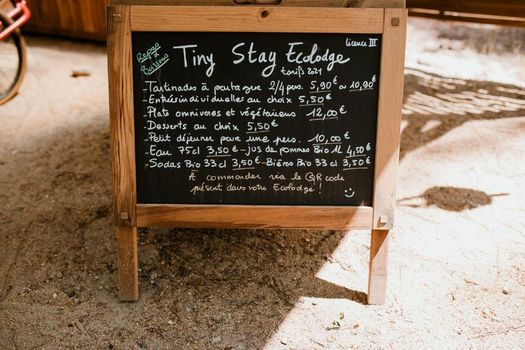 Repas & Boissons
Tiny Stay Ecolodge
Licence III
tarifs 2021
- Tartinades à partager 2/4 pers. 5,90€ ou 10,90€
- Entrées individuelles au choix 5,50€
- Plats omnivores et végétariens 12,00€
- Desserts au choix 5,50€
- Petit déjeuner pour une pers. 10,00€
- Eau 75cl 3,50€ - Jus de pommes Bio 1L 4,50€
- Sodas Bio 33cl 3,50€ - Bières Bio 33cl 3,50€
À commander via le QR code
présent dans votre Ecolodge !